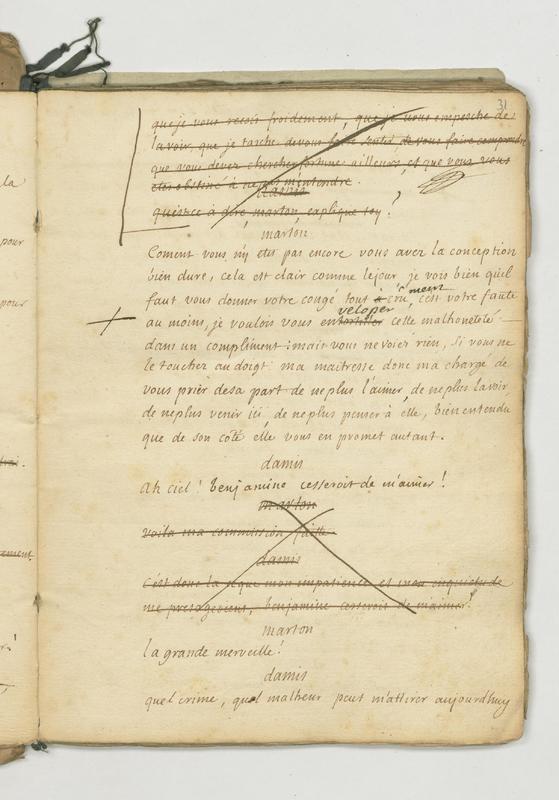 31
que je vous reçois froidement, que je vous empesche de
la voir, que je tasche de vous de vous faire comprendre
que vous devez chercher fortune ailleurs, et que vous vous
etes obstiné à ne pas m'entendre.
damis
qu'est ce à dire, marton, explique toy ?
marton
Coment vous n'y etes pas encore vous avez la conception
bien dure, cela est clair comme le jour, je vois bien quil
faut vous donner votre congé tout à cruement, c'est votre faute
au moins, je voulois vous envelopper cette malhonêteté
dans un compliment : mais vous ne voiez rien, si vous ne
le touchez au doigt. ma maitresse donc ma chargé de
vous prier de sa part de ne plus l'aimer, de ne plus la voir,
de ne plus venir ici, de ne plus penser à elle, bien entendu
que de son coté elle vous en promet autant.
damis
ah ciel ! benjamine cesseroit de m'aimer !
marton
voila ma commission faitte.
damis
c'est donc la ce que mon impatience et mon inquietude
me presageoient, benjamine cesseroit de m'aimer !
marton
la grande merveille !
damis
quel crime, quel malheur peut m'attirer aujourdhuy